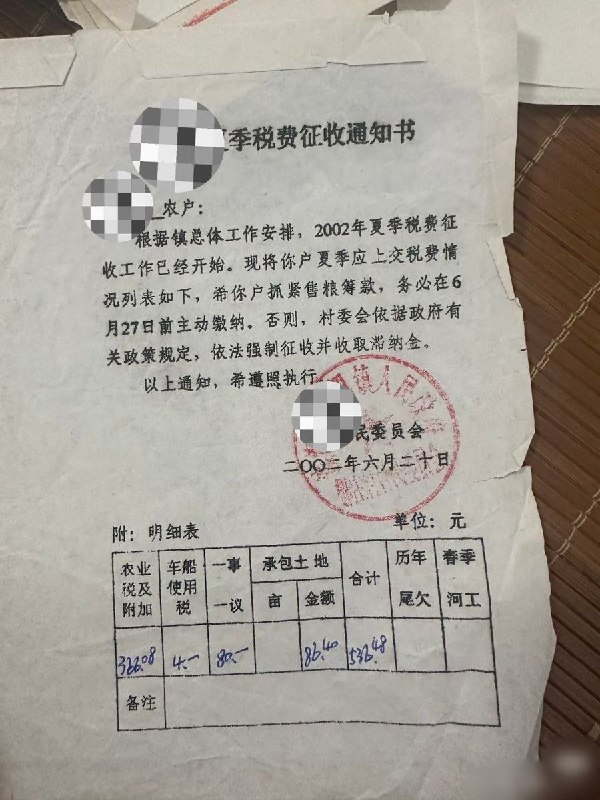 季税费征收通知书
农户：
根据镇总体工作安排，2002年夏季税费征
收工作已经开始。现将你户夏季应上交税费情
况列表如下，希你户抓紧售粮筹款，务必在6
月27日前主动缴纳。否则，村委会依据政府有
关政策规定，依法强制征收并收取滞纳金。
以上通知，希遵照执行
镇人民政府
民委员会
二〇〇二年六月二十日
附：明细表 单位：元
农业税及附加 车船使用税 一事一议 承包土地 亩 金额 合计 历年尾欠 春季河工
366.08 4.— 80.— 86.40 536.48
备注